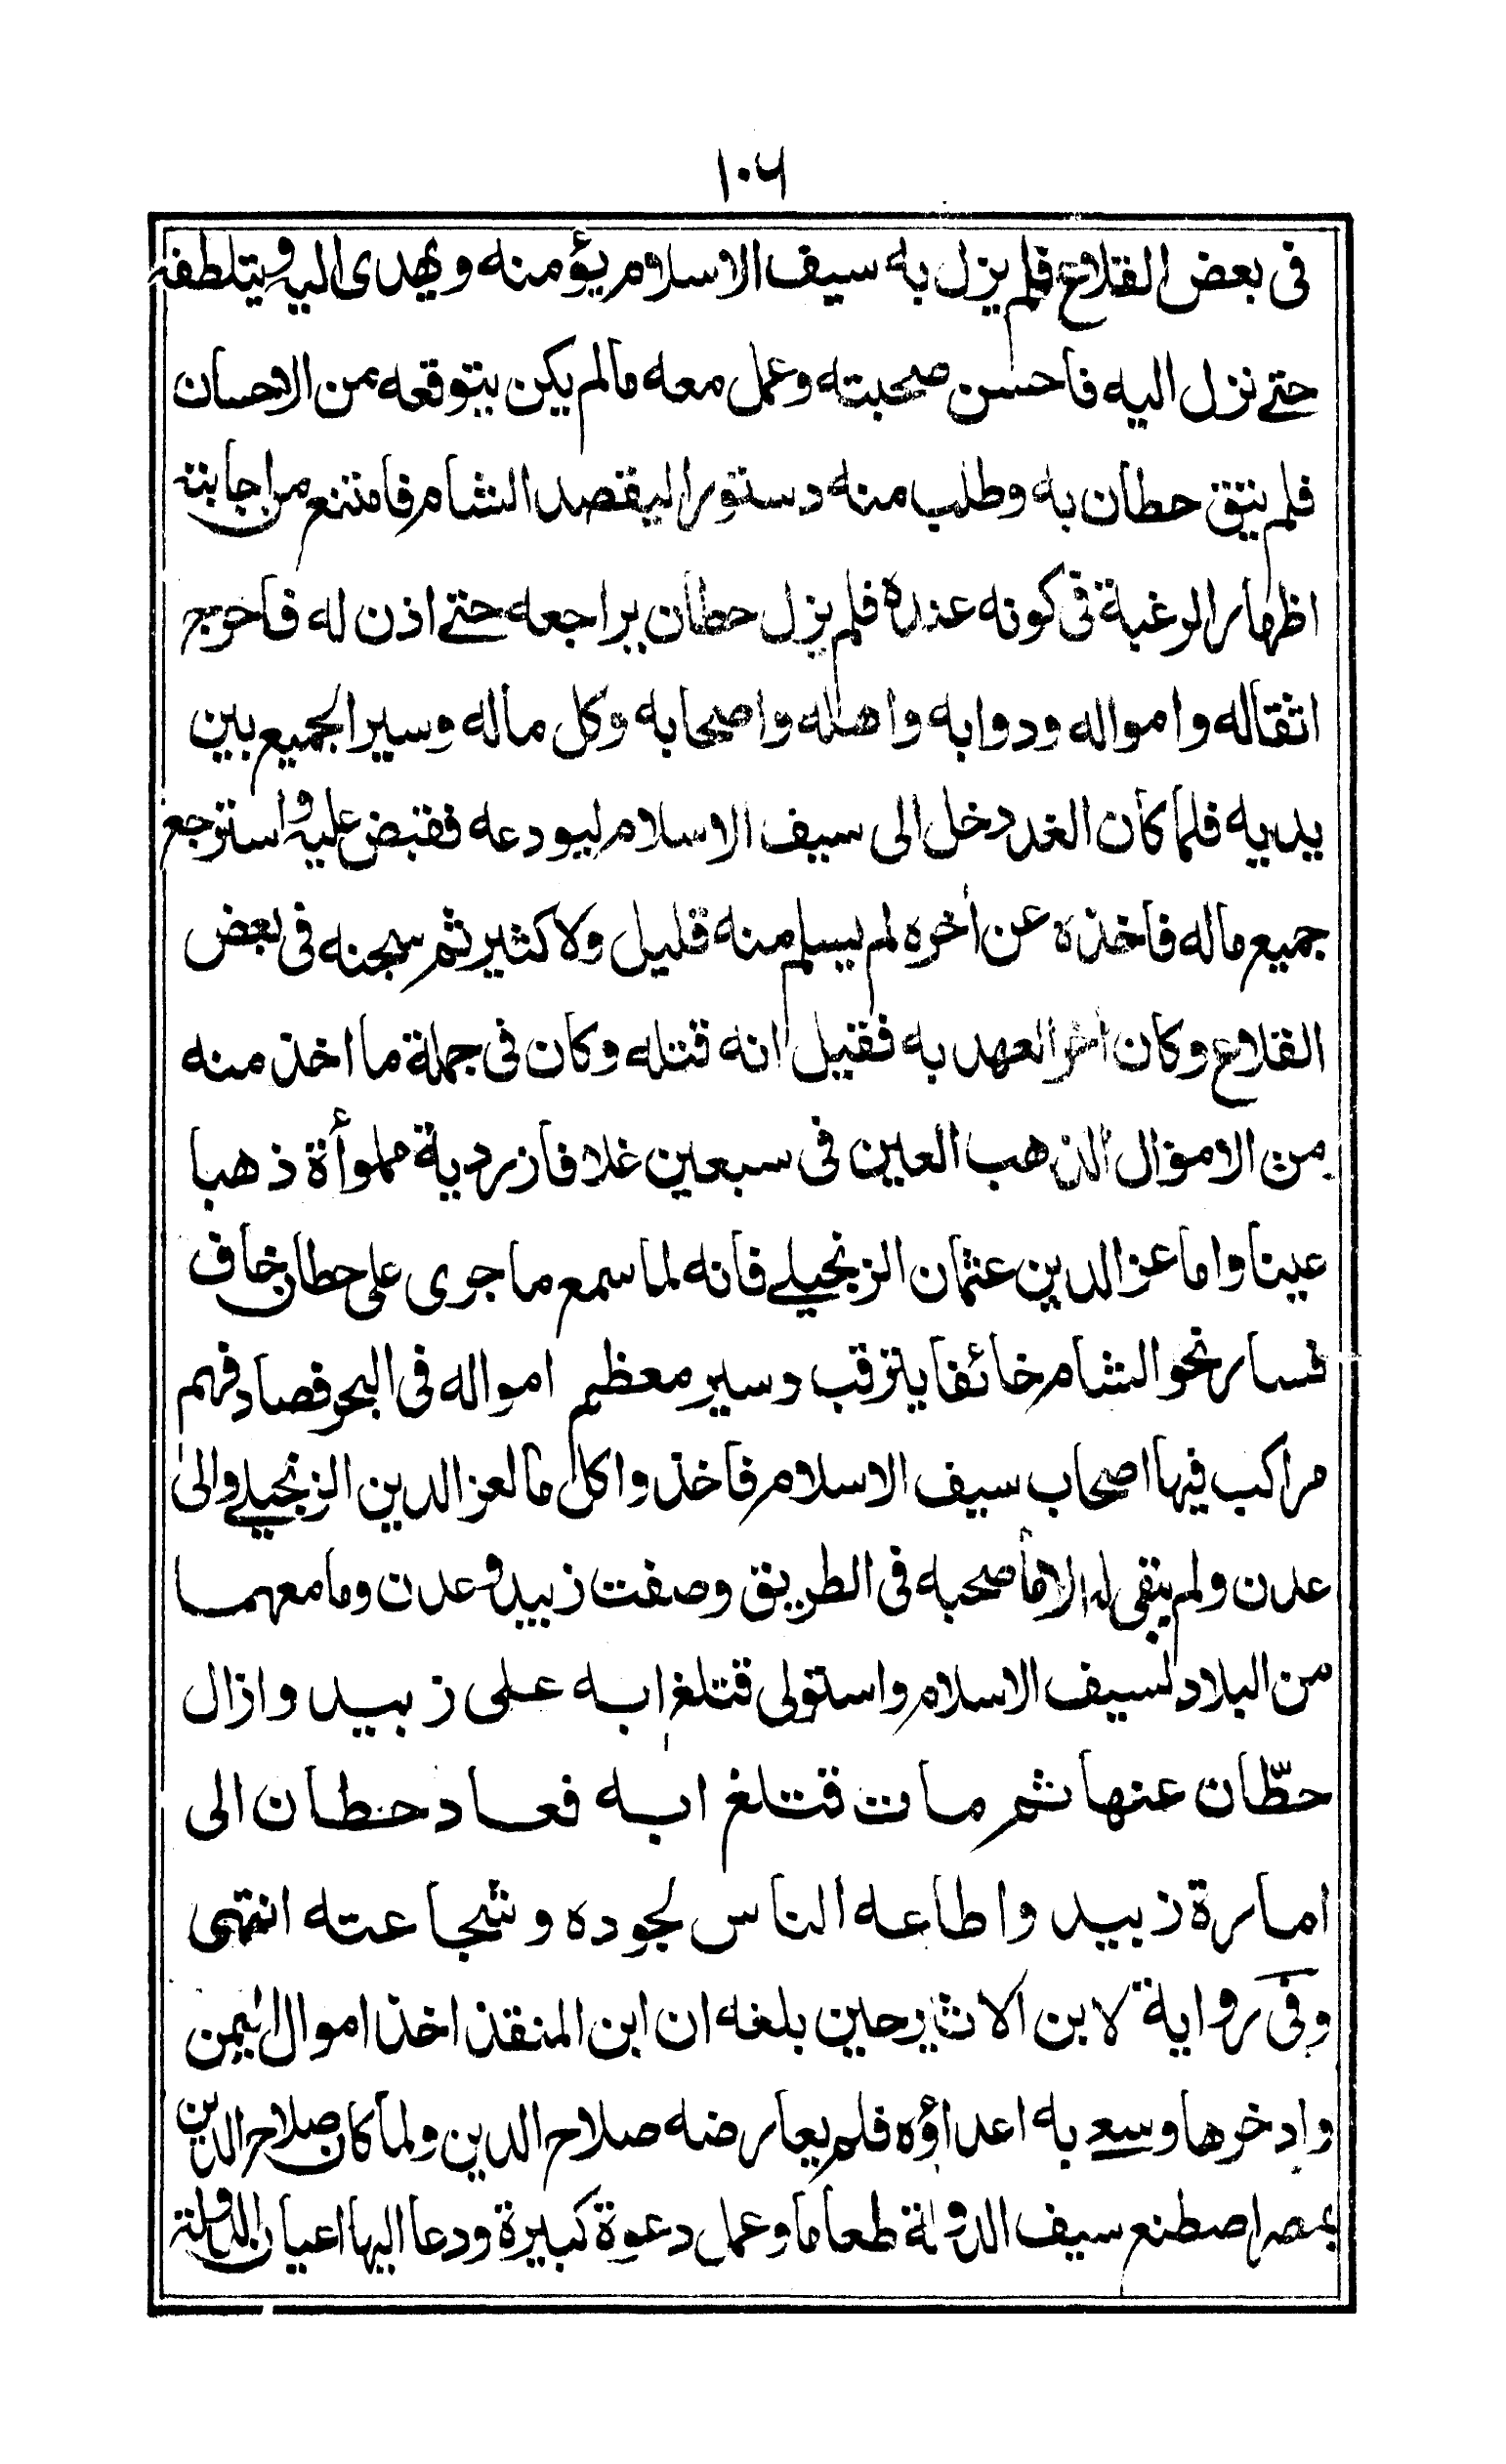 ١٠٦
فى بعض القلاع فلم يزل به سيف الاسلام يؤمنه ويهدى اليه ويتلطفه
حتے نزل اليه فاحسن صحبته وعمل معه مالم يكن يتوقعه من الاحسان
فلم يثق حطان به وطلب منه دستورا ليقصد الشام فامتنع من اجابته
اظهار الرغبة فى كونه عنده فلم يزل حطان يراجعه حتے اذن له فاخرج
اثقاله وامواله ودوابه واهله واصحابه وكل ماله وسير الجميع بين
يديه فلما كان الغد دخل الى سيف الاسلام ليودعه فقبض عليه واسترجع
جميع ماله فاخذه عن اخره لم يسلم منه قليل ولا كثير ثم سجنه فى بعض
القلاع وكان اخر العهد به فقيل انه قتله وكان فى جملة ما اخذ منه
من الاموال الذهب العين فى سبعين غلافا زردية مملوأة ذهبا
عينا واما عز الدين عثمان الزنجيلے فانه لما سمع ما جرى على حطان خاف
فسار نحو الشام خائفا يترقب وسير معظم امواله فى البحر فصادفهم
مراكب فيها اصحاب سيف الاسلام فاخذوا كل ما لعز الدين الزنجيلے والى
عدن ولم يبقى له الا ما صحبه فى الطريق وصفت زبيد وعدن وما معهما
من البلاد لسيف الاسلام واستولى قتلغ ابه على زبيد وازال
حطّان عنها ثم مات قتلغ ابه فعاد حطان الى
امارة زبيد واطاعه الناس لجوده وشجاعته انتهى
وفى رواية لابن الاثير حين بلغه ان ابن المنقذ اخذ اموال اليمن
وادخرها وسعے به اعداؤه فلم يعارضه صلاح الدين ولما كان صلاح الدين
بمصر اصطنع سيف الدولة طعاما وعمل دعوة كبيرة ودعا اليها اعيان الدولة